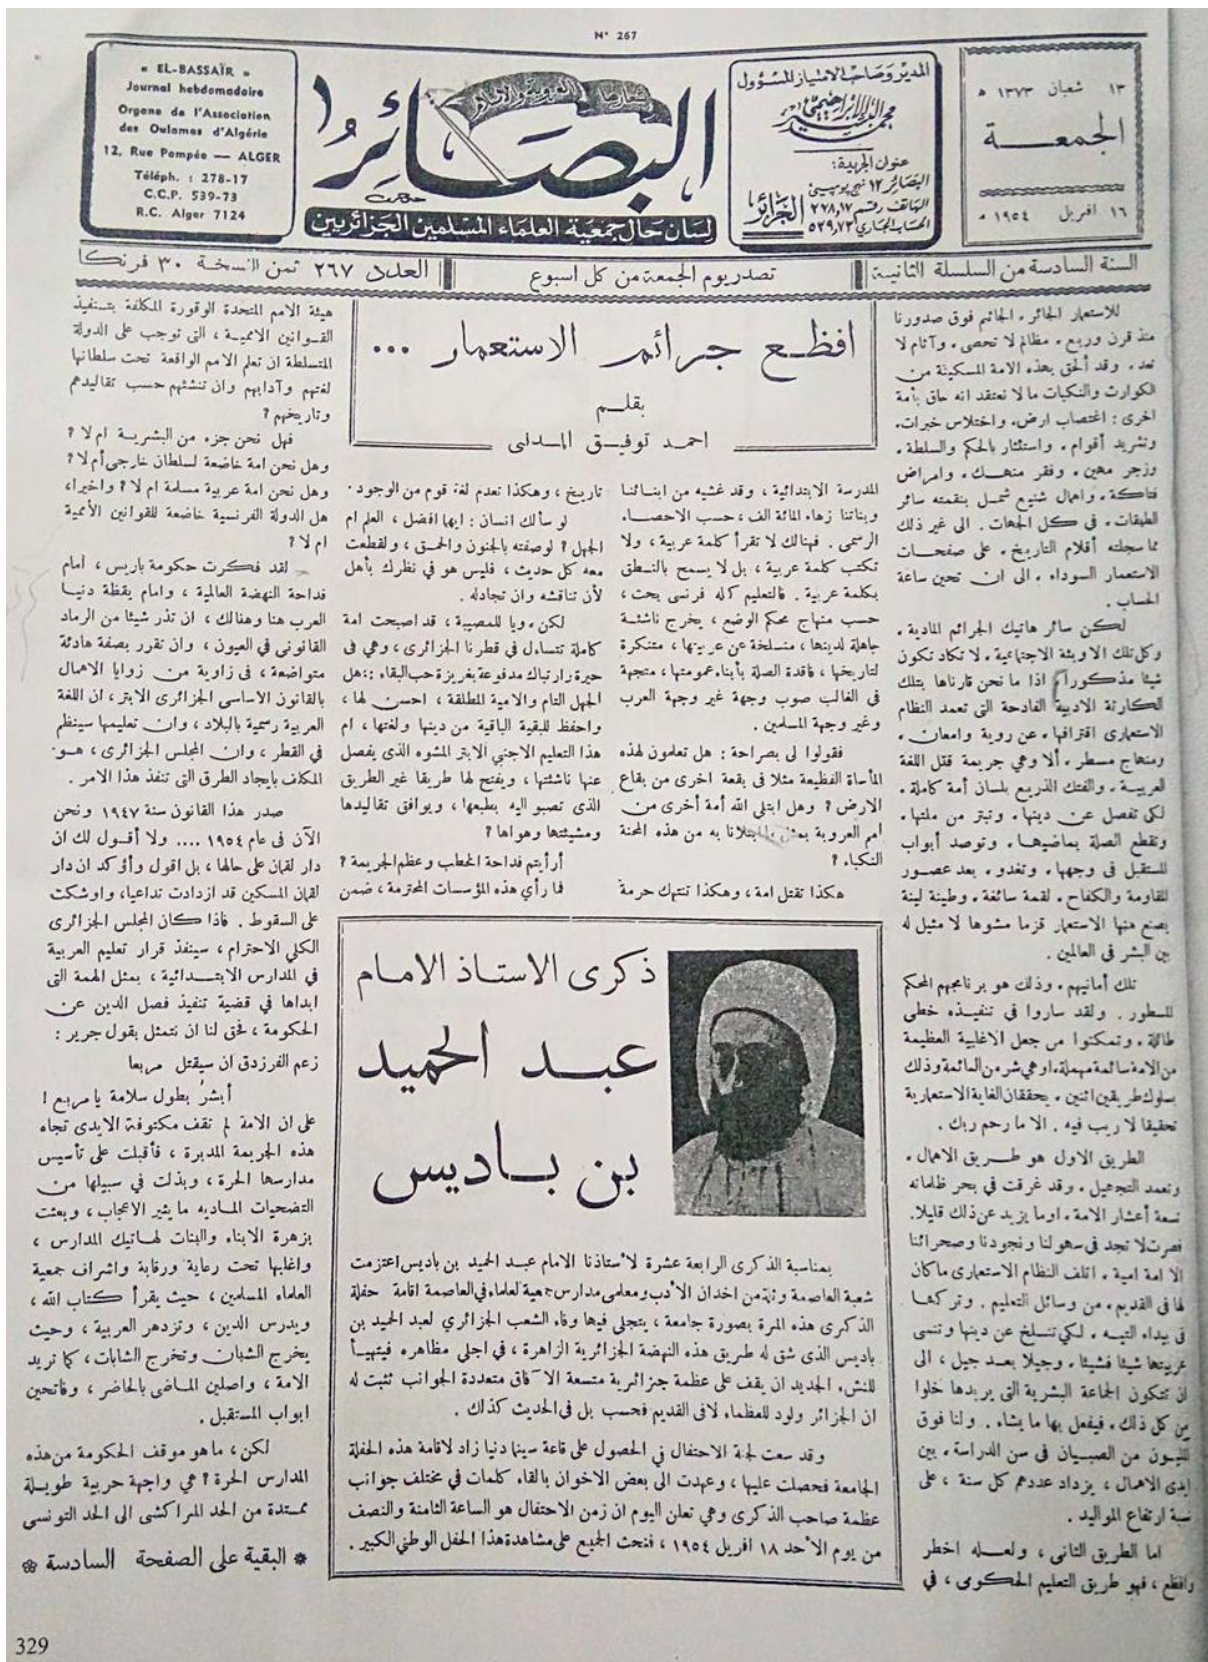 N° 267
١٣ شعبان ١٣٧٣ ه
الجمعـــة
١٦ افريل ١٩٥٤ م
المدير وصاحب الامتياز المسؤول
محمد البشير الابراهيمي
عنوان الجريدة:
البصائر ١٢ نهج بومبيي
الهاتف رقم ٢٧٨،١٧
الحساب الجاري ٥٣٩,٧٣
الجزائر
شعارها العروبة والاسلام
البصائر
لسان حال جمعية العلماء المسلمين الجزائريين
« EL-BASSAÏR »
Journal hebdomadaire
Organe de l'Association
des Oulamas d'Algérie
12, Rue Pompée — ALGER
Téléph. : 278-17
C.C.P. 539-73
R.C. Alger 7124
السنة السادسة من السلسلة الثانية
تصدر يوم الجمعة من كل اسبوع
العدد ٢٦٧ ثمن النسخة ٣٠ فرنكا
افظـع جرائم الاستعمار ...
بقلـم
احمد توفيق المدنى
للاستعمار الجائر، الجاثم فوق صدورنا
منذ قرن وربع، مظالم لا تحصى، وآثام لا
تعد، وقد ألحق بهذه الامة المسكينة من
الكوارث والنكبات ما لا نعتقد انه حاق بأمة
اخرى: اغتصاب ارض، واختلاس خيرات،
وتشريد أقوام، واستئثار بالحكم والسلطة،
وزجر مهين، وفقر منهك، وامراض
فتاكة، واهمال شنيع شمل بنقمته سائر
الطبقات، فى كل الجهات. الى غير ذلك
مما سجلته أقلام التاريخ، على صفحات
الاستعمار السوداء، الى ان تحين ساعة
الحساب.
لـكن سائر هاتيك الجرائم المادية،
وكل تلك الاوبئة الاجتماعية، لا تكاد تكون
شيئا مذكورا، اذا ما نحن قارناها بتلك
الكارثة الادبية الفادحة التى تعمد النظام
الاستعمارى اقترافها، عن روية وامعان،
ومنهاج مسطر، ألا وهي جريمة قتل اللغة
العربية، والفتك الذريع بلسان أمة كاملة،
لكى تفصل عن دينها، وتبتر من ملتها،
وتقطع الصلة بماضيهـا، وتوصد أبواب
المستقبل فى وجهها، وتغدو، بعد عصـور
المقاومة والكفاح، لقمة سائغة، وطينة لينة
يصنع منها الاستعمار قزما مشوها لا مثيل له
بين البشر فى العالمين.
تلك أمانيهم، وذلك هو برنامجهم المحكم
المسطور. ولقد ساروا فى تنفيـذه خطى
طائلة، وتمكنوا من جعل الاغلبية العظيمة
من الامة سائمة مهملة، او هي شر من السائمة وذلك
بسلوك طريقين اثنين، يحققان الغاية الاستعمارية
تحقيقا لا ريب فيه. الا ما رحم ربك.
الطريق الاول هو طـريق الاهمال،
وتعمد التجهيل، وقد غرقت في بحر ظلماته
تسعة أعشار الامة، او ما يزيد عن ذلك قليلا.
فصرت لا تجد فى سهولنا ونجودنا وصحرائنا
الا امة امية، اتلف النظام الاستعمارى ما كان
لها فى القديم، من وسائل التعليم، وتركها
فى بيداء التيه، لكي تنسلخ عن دينها وتنسى
عربيتها شيئا فشيئا، وجيلا بعـد جيل، الى
ان تتكون الجماعة البشرية التى يريدها خلوا
من كل ذلك، فيفعل بها ما يشاء. ولنا فوق
المليـون من الصبيـان فى سن الدراسة، بين
ايدى الاهمال، يزداد عددهم كل سنة، على
نسبة ارتفاع المواليد.
اما الطريق الثانى، ولعـله اخطر
وافظع، فهو طريق التعليم الحكومى، في
المدرسة الابتدائية، وقد غشيه من ابنـائنـا
وبناتنا زهاء المائة الف، حسب الاحصـاء
الرسمى. فهنالك لا تقرأ كلمة عربية، ولا
تكتب كلمة عربية، بل لا يسمح بالنـطق
بكلمة عربية. فالتعليم كله فرنسى بحت،
حسب منهاج محكم الوضع، يخرج ناشئـة
جاهلة لدينها، منسلخة عن عربيتها، متنكرة
لتاريخها، فاقدة الصلة بأبناء عمومتها، متجهة
فى الغالب صوب وجهة غير وجهة العرب
وغير وجهة المسلمين.
فقولوا لى بصراحة: هل تعلمون لهذه
المأساة الفظيعة مثلا فى بقعة اخرى من بقاع
الارض؟ وهل ابتلى الله أمة أخرى من
أمم العروبة بمثل ما ابتلانا به من هذه المحنة
النكباء؟
هكذا تقتل امة، وهكذا تنتهك حرمة
تاريخ، وهكذا تعدم لغة قوم من الوجود.
لو سألك انسان: ايهما افضل، العلم ام
الجهل؟ لوصفته بالجنون والحمـق، ولقطعت
معه كل حديث، فليس هو في نظرك بأهل
لأن تناقشه وان تجادله.
لكن، ويا للمصيبة، قد اصبحت امة
كاملة تتساءل فى قطرنا الجزائرى، وهي فى
حيرة وارتباك مدفوعة بغريزة حب البقاء: هل
الجهل التام والامية المطلقة، احسن لها،
واحفظ للبقية الباقية من دينها ولغتها، ام
هذا التعليم الاجنبي الابتر المشوه الذى يفصل
عنها ناشئتها، ويفتح لها طريقا غير الطريق
الذى تصبو اليه بطبعها، ويوافق تقاليدها
ومشيئتها وهواها؟
أرأيتم فداحة الخطب وعظم الجريمة؟
فما رأي هذه المؤسسات المحترمة، ضمن
هيئة الامم المتحدة الوقورة المكلفة بتـنفيذ
القـوانين الامميـة، التى توجب على الدولة
المتسلطة ان تعلم الامم الواقعة تحت سلطانها
لغتهم وآدابهم وان تنشئهم حسب تقاليدهم
وتاريخهم؟
فهل نحن جزء من البشريـة ام لا؟
وهل نحن امة خاضعة لسلطان خارجى أم لا؟
وهل نحن امة عربية مسلمة ام لا؟ واخيرا،
هل الدولة الفرنسية خاضعة للقوانين الأممية
ام لا؟
لقد فـكرت حكومة باريس، أمام
فداحة النهضة العالمية، وامام يقظة دنيـا
العرب هنا وهنالك، ان تذر شيئا من الرماد
القانونى في العيون، وان تقرر بصفة هادئة
متواضعة، فى زاوية من زوايا الاهمال
بالقانون الاساسى الجزائرى الابتر، ان اللغة
العربية رسمية بالبلاد، وان تعليمها سينظم
في القطر، وان المجلس الجزائرى، هـو
المكلف بايجاد الطرق التى تنفذ هذا الامر.
صدر هذا القانون سنة ١٩٤٧ ونحن
الآن فى عام ١٩٥٤ .... ولا أقـول لك ان
دار لقمان على حالها، بل اقول وأؤكد ان دار
لقمان المسكين قد ازدادت تداعيا، واوشكت
على السقوط. فاذا كان المجلس الجزائرى
الكلي الاحترام، سينفذ قرار تعليم العربية
في المدارس الابتـدائية، بمثل الهمة التى
ابداها في قضية تنفيذ فصل الدين عن
الحكومة، لحق لنا ان نتمثل بقول جرير:
زعم الفرزدق ان سيقتل مربعا
أبشر بطول سلامة يا مربع!
على ان الامة لم تقف مكتوفة الايدى تجاه
هذه الجريمة المدبرة، فأقبلت على تأسيس
مدارسها الحرة، وبذلت في سبيلها من
التضحيات الماديه ما يثير الاعجاب، وبعثت
بزهرة الابناء والبنات لهـاتيك المدارس،
واغلبها تحت رعاية ورقابة واشراف جمعية
العلماء المسلمين، حيث يقرأ كتاب الله،
ويدرس الدين، وتزدهر العربية، وحيث
يخرج الشبان وتخرج الشابات، كما تريد
الامة، واصلين الماضى بالحاضر، وفاتحين
ابواب المستقبل.
لكن، ما هو موقف الحكومة من هذه
المدارس الحرة؟ هي واجهة حربية طويـلة
ممتدة من الحد المراكشى الى الحد التونسى
* البقية على الصفحة السادسة *
ذكرى الاستاذ الامام
عبـد الحميد
بن بـاديس
بمناسبة الذكرى الرابعة عشرة لاستاذنا الامام عبد الحميد بن باديس اعتزمت
شعبة العاصمة وثلة من اخدان الأدب ومعلمى مدارس جمعية العلماء فى العاصمة اقامة حفلة
الذكرى هذه المرة بصورة جامعة، يتجلى فيها وفاء الشعب الجزائري لعبد الحميد بن
باديس الذى شق له طريق هذه النهضة الجزائرية الزاهرة، في اجلى مظاهره فيتهيـأ
للنشء الجديد ان يقف على عظمة جزائرية متسعة الآفاق متعددة الجوانب تثبت له
ان الجزائر ولود للعظماء لا في القديم فحسب بل فى الحديث كذلك.
وقد سعت لجنة الاحتفال في الحصول على قاعة سينما دنيا زاد لاقامة هذه الحفلة
الجامعة فحصلت عليها، وعهدت الى بعض الاخوان بالقاء كلمات في مختلف جوانب
عظمة صاحب الذكرى وهي تعلن اليوم ان زمن الاحتفال هو الساعة الثامنة والنصف
من يوم الأحد ١٨ افريل ١٩٥٤، فنحث الجميع على مشاهدة هذا الحفل الوطني الكبير.
329